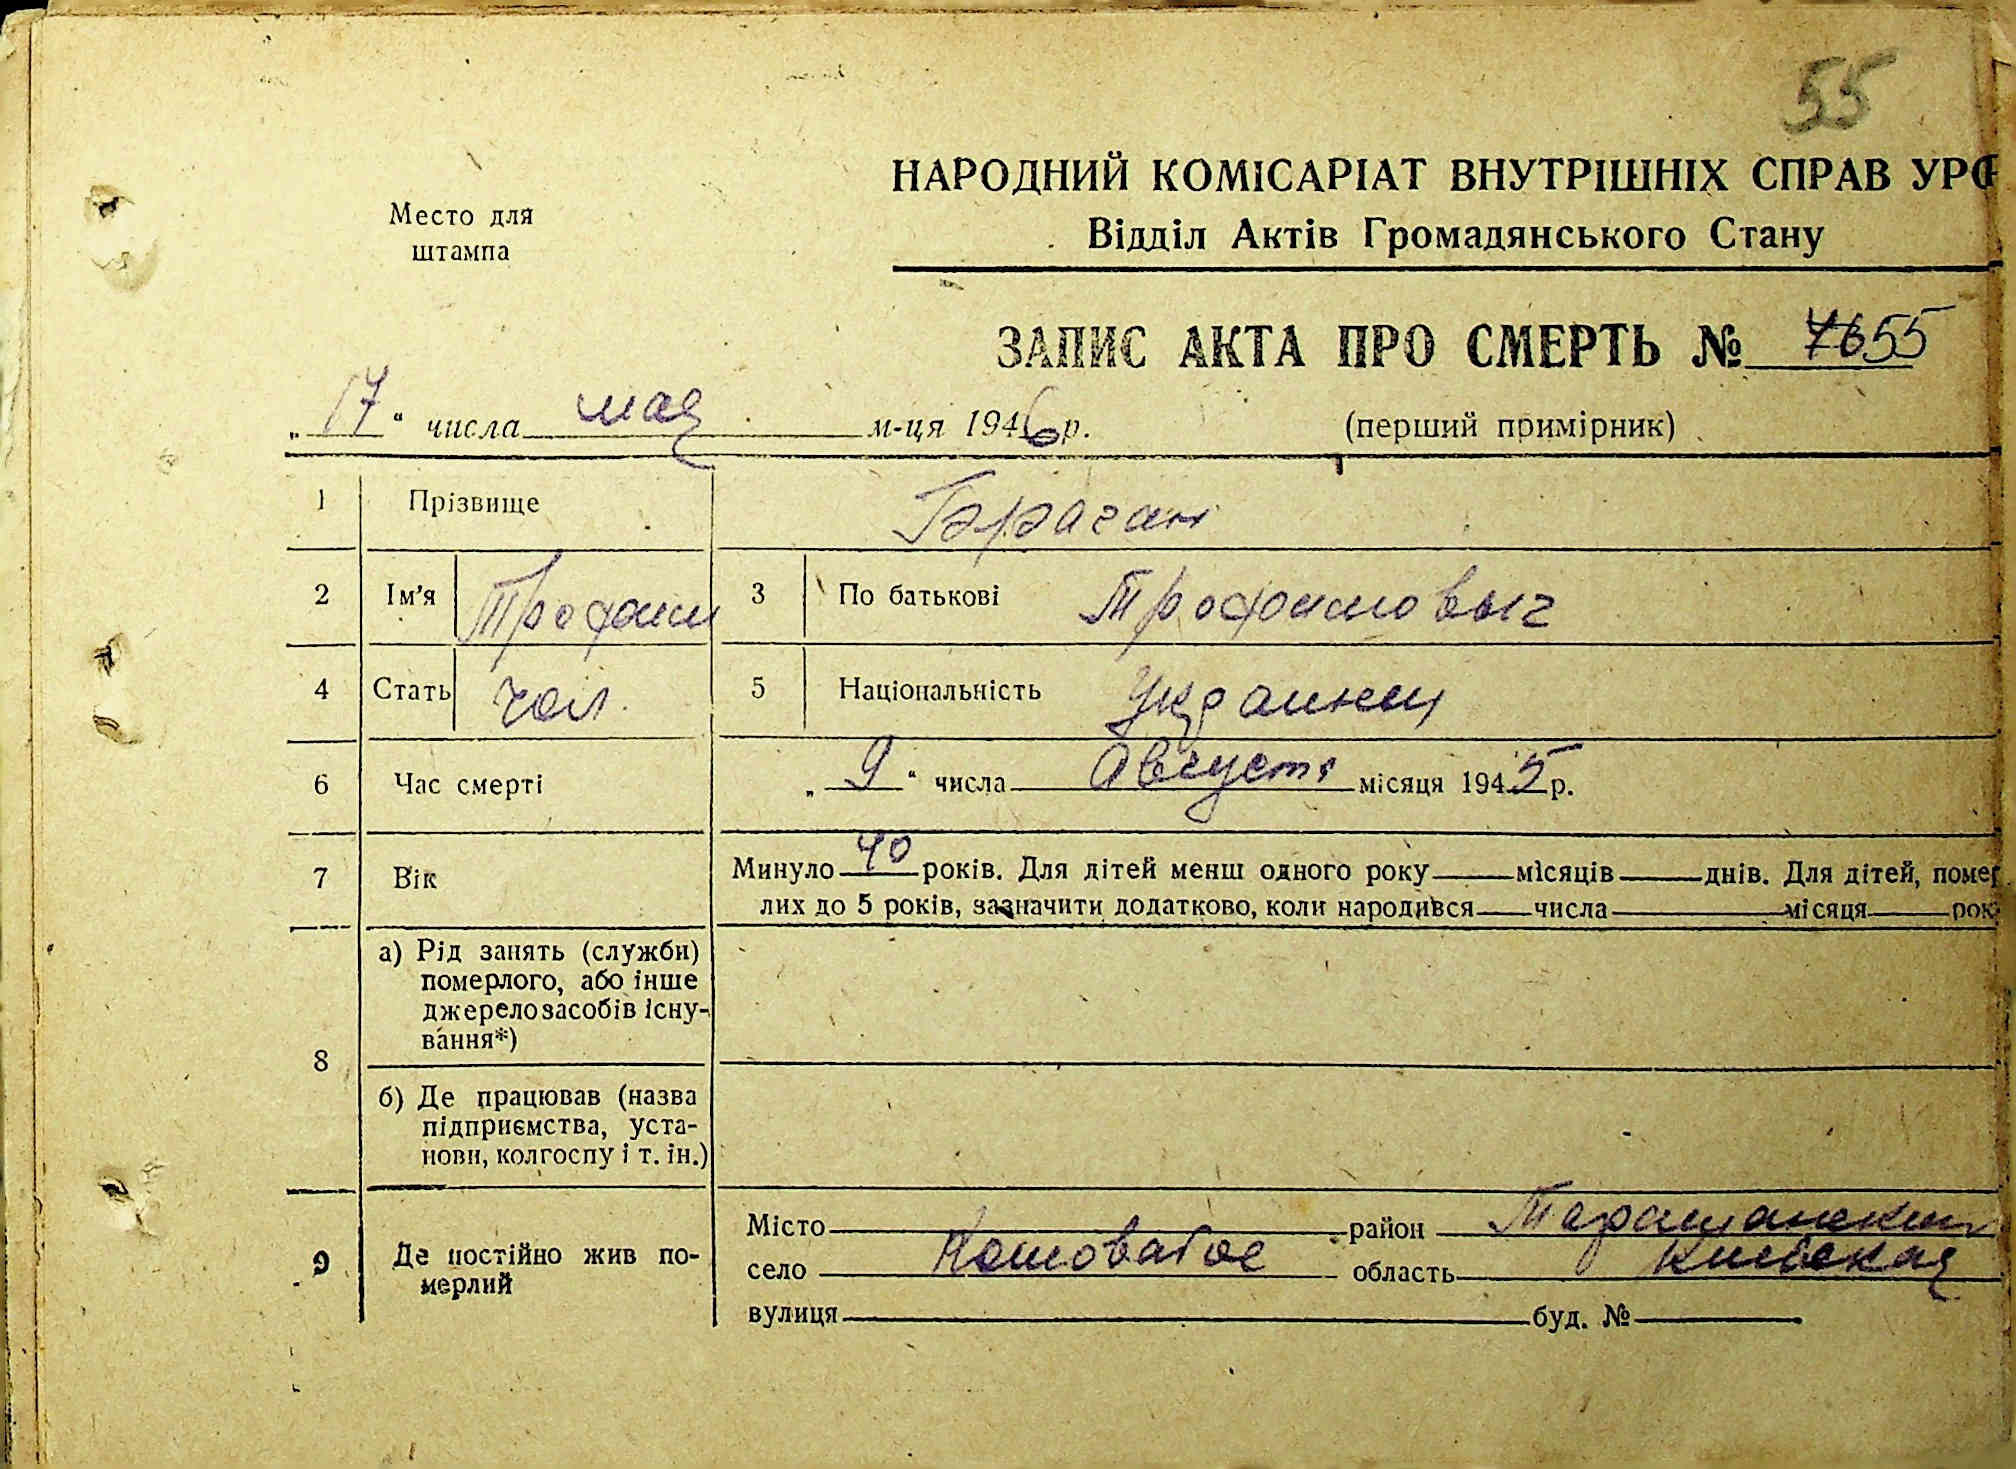 55
НАРОДНИЙ КОМІСАРІАТ ВНУТРІШНІХ СПРАВ УРС
Відділ Актів Громадянського Стану
Место для
штампа
ЗАПИС АКТА ПРО СМЕРТЬ № 7655
„17“ числа мая м-ця 1946 р. (перший примірник)
1 Прізвище Бараган
2 Ім'я Трофим 3 По батькові Трофимовыч
4 Стать чол. 5 Національність Украинец
6 Час смерті „9“ числа Августа місяця 1945 р.
7 Вік Минуло 40 років. Для дітей менш одного року місяців днів. Для дітей, помер
лих до 5 років, зазначити додатково, коли народився числа місяця рок
8 а) Рід занять (служби)
померлого, або інше
джерело засобів існу-
вання*)
б) Де працював (назва
підприємства, уста-
нови, колгоспу і т. ін.)
9 Де постійно жив по-
мерлий
Місто район Таращанский
село Кошоватое область Киевская
вулиця буд. №